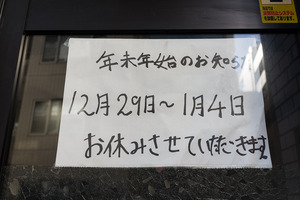 年末年始のお知らせ
12月29日～1月4日
お休みさせていただきます